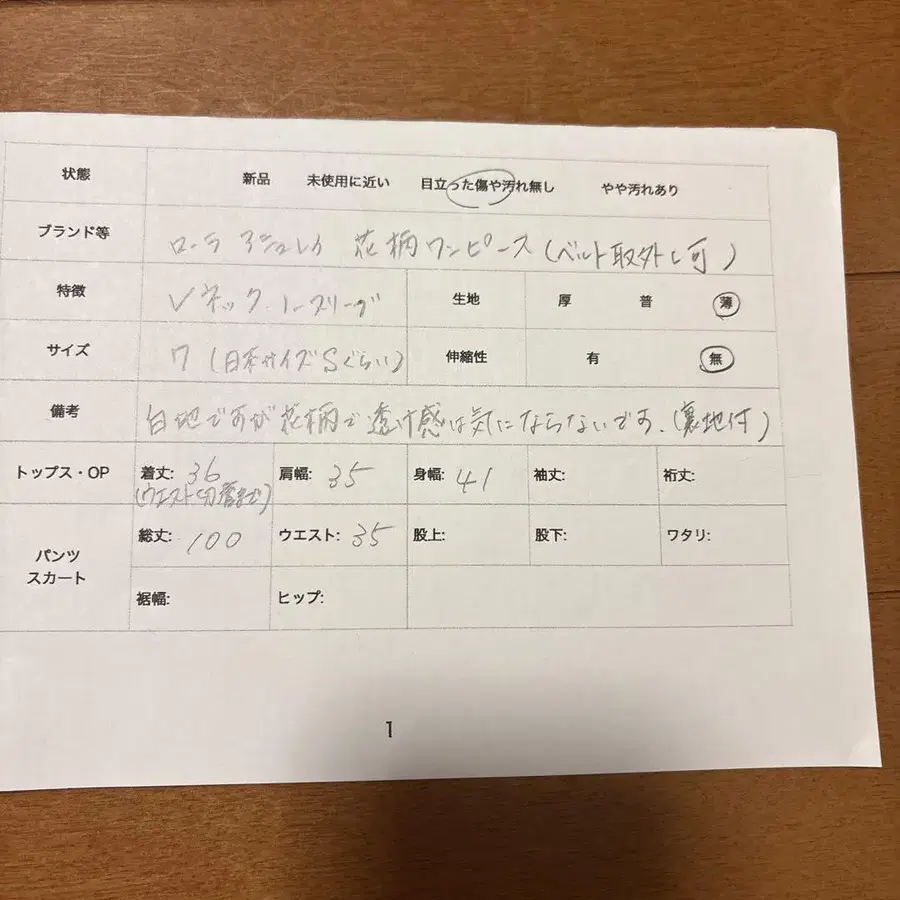 状態 新品 未使用に近い 目立った傷や汚れ無し やや汚れあり
ブランド等 ローラ アシュレイ 花柄ワンピース(ベルト取外し可)
特徴 Vネック.ノースリーブ 生地 厚 普 薄
サイズ 7(日本サイズSぐらい) 伸縮性 有 無
備考 白地ですが花柄で透け感は気にならないです.(裏地付)
トップス・OP 着丈: 36 肩幅: 35 身幅: 41 袖丈: 裄丈:
(ウエスト切替まで)
パンツ スカート 総丈: 100 ウエスト: 35 股上: 股下: ワタリ:
裾幅: ヒップ:
1